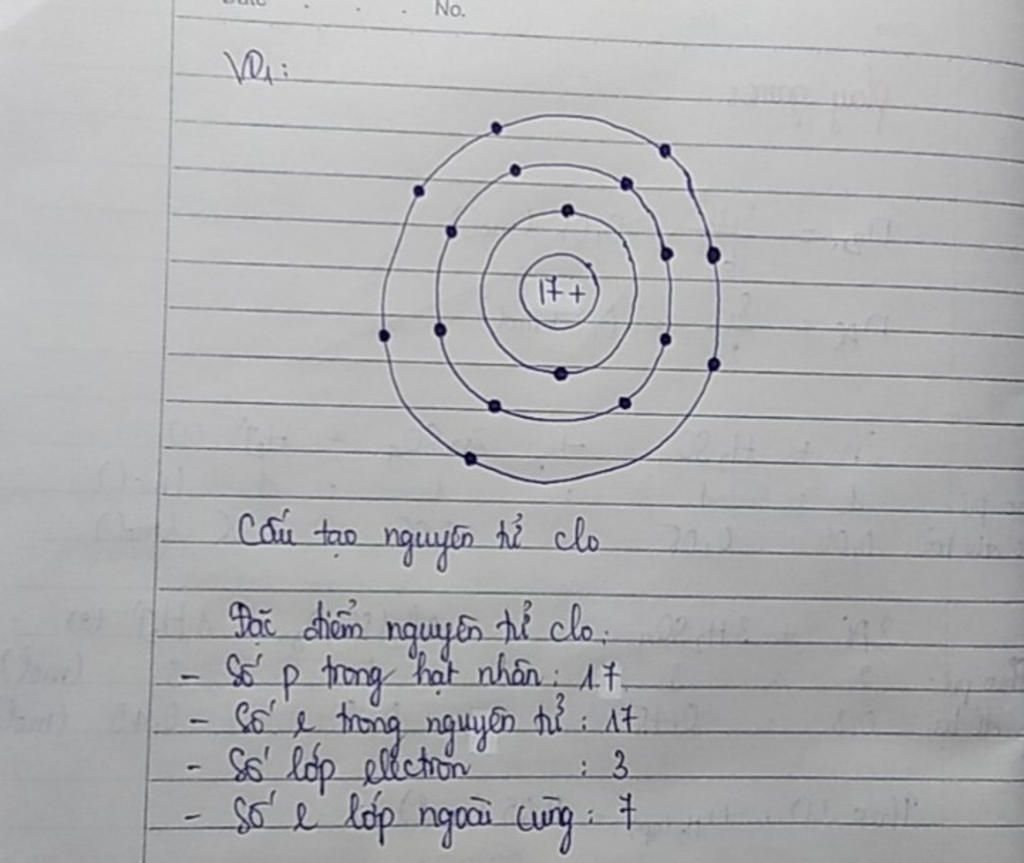 No.
VD1:
17+
Cấu tạo nguyên tử clo
Đặc điểm nguyên tử clo:
- Số p trong hạt nhân: 17
- Số e trong nguyên tử: 17
- Số lớp electron : 3
- Số e lớp ngoài cùng: 7